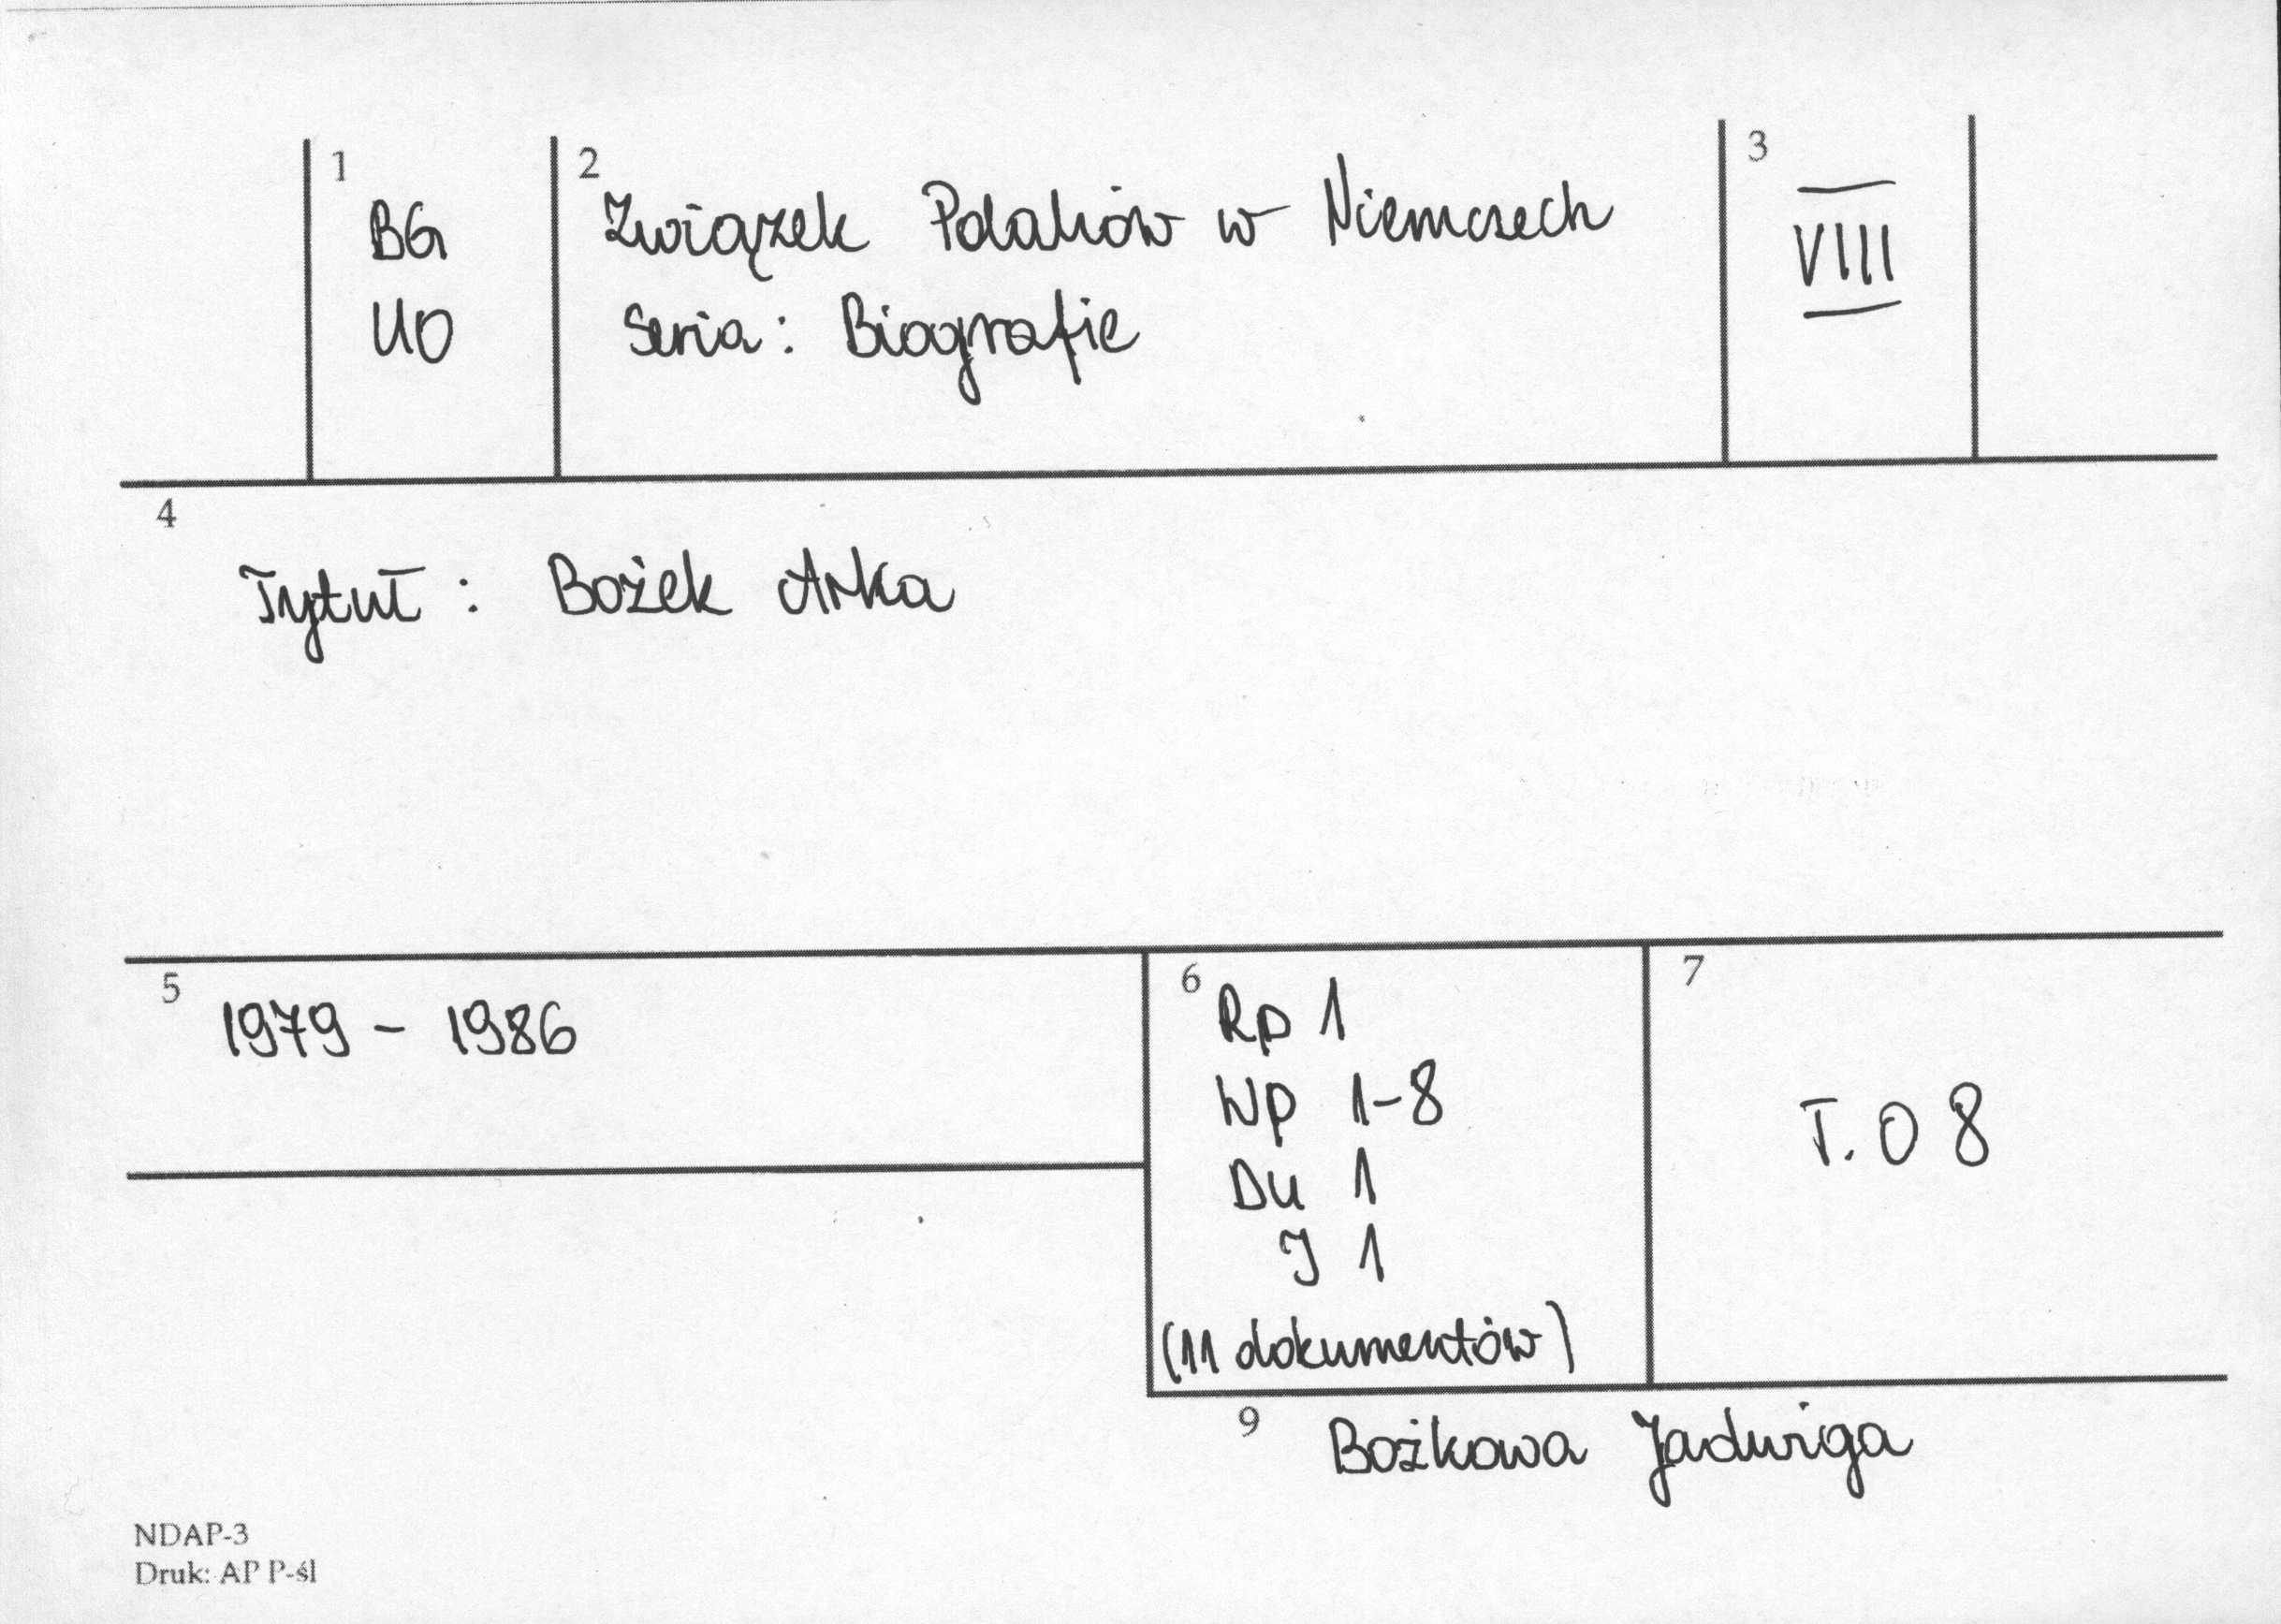 1
BG
UO
2
Związek Polaków w Niemczech
Seria: Biografie
3
VIII
4
Tytuł: Bożek Arka
5
1979 - 1986
6
Rp 1
Wp 1-8
Du 1
J 1
(11 dokumentów)
7
T.08
9
Bożkowa Jadwiga
NDAP-3
Druk: AP P-śl